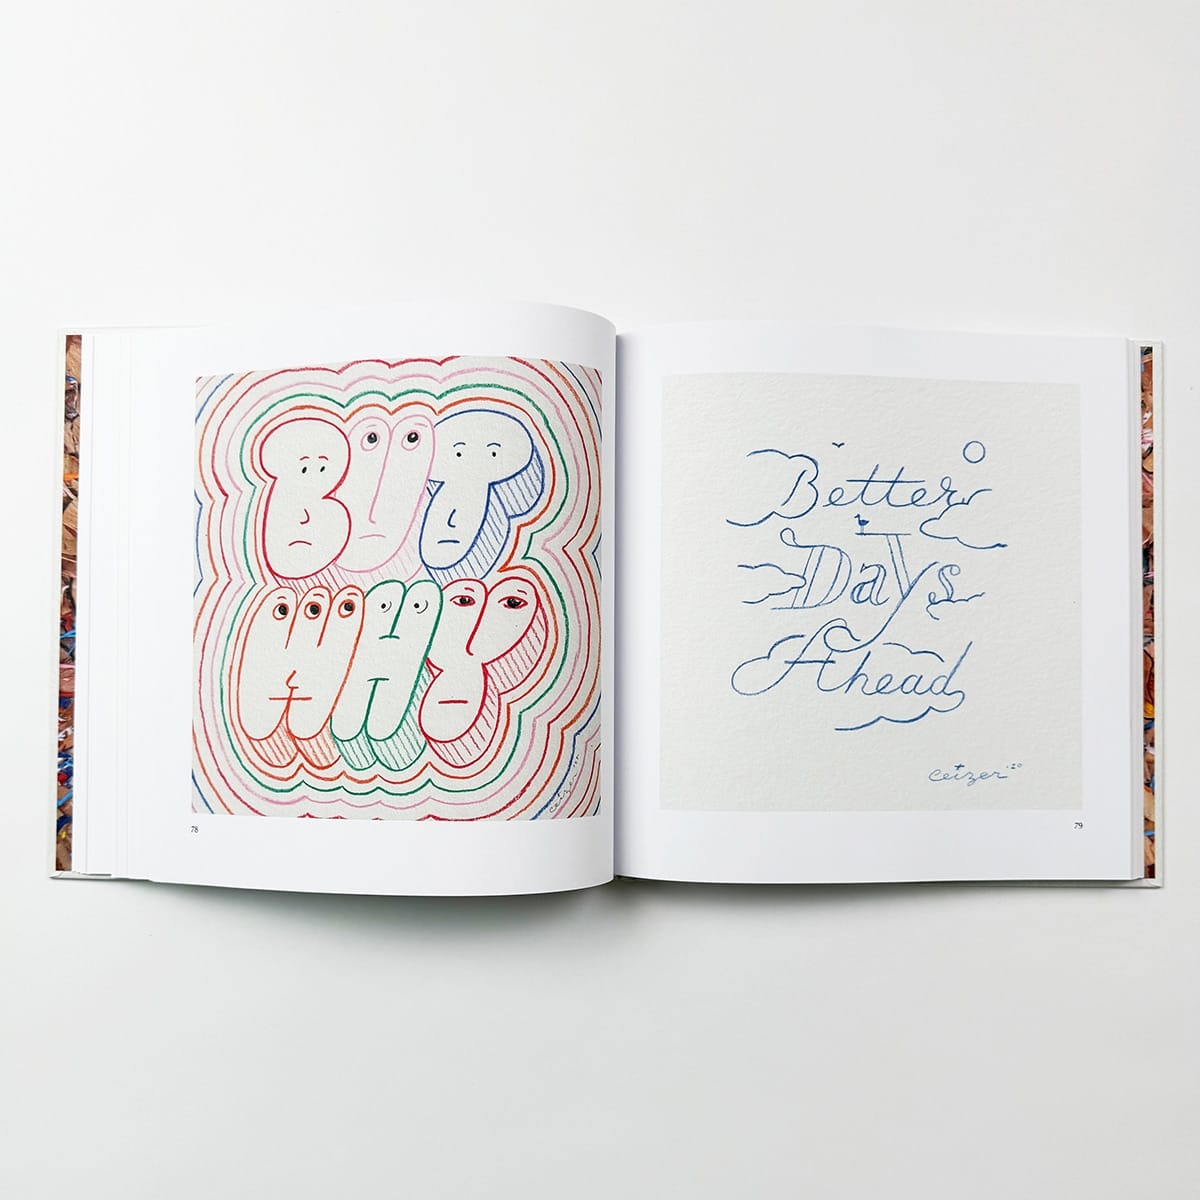 BUT
WHY
ceizer '20
78
Better
Days
Ahead
ceizer '20
79